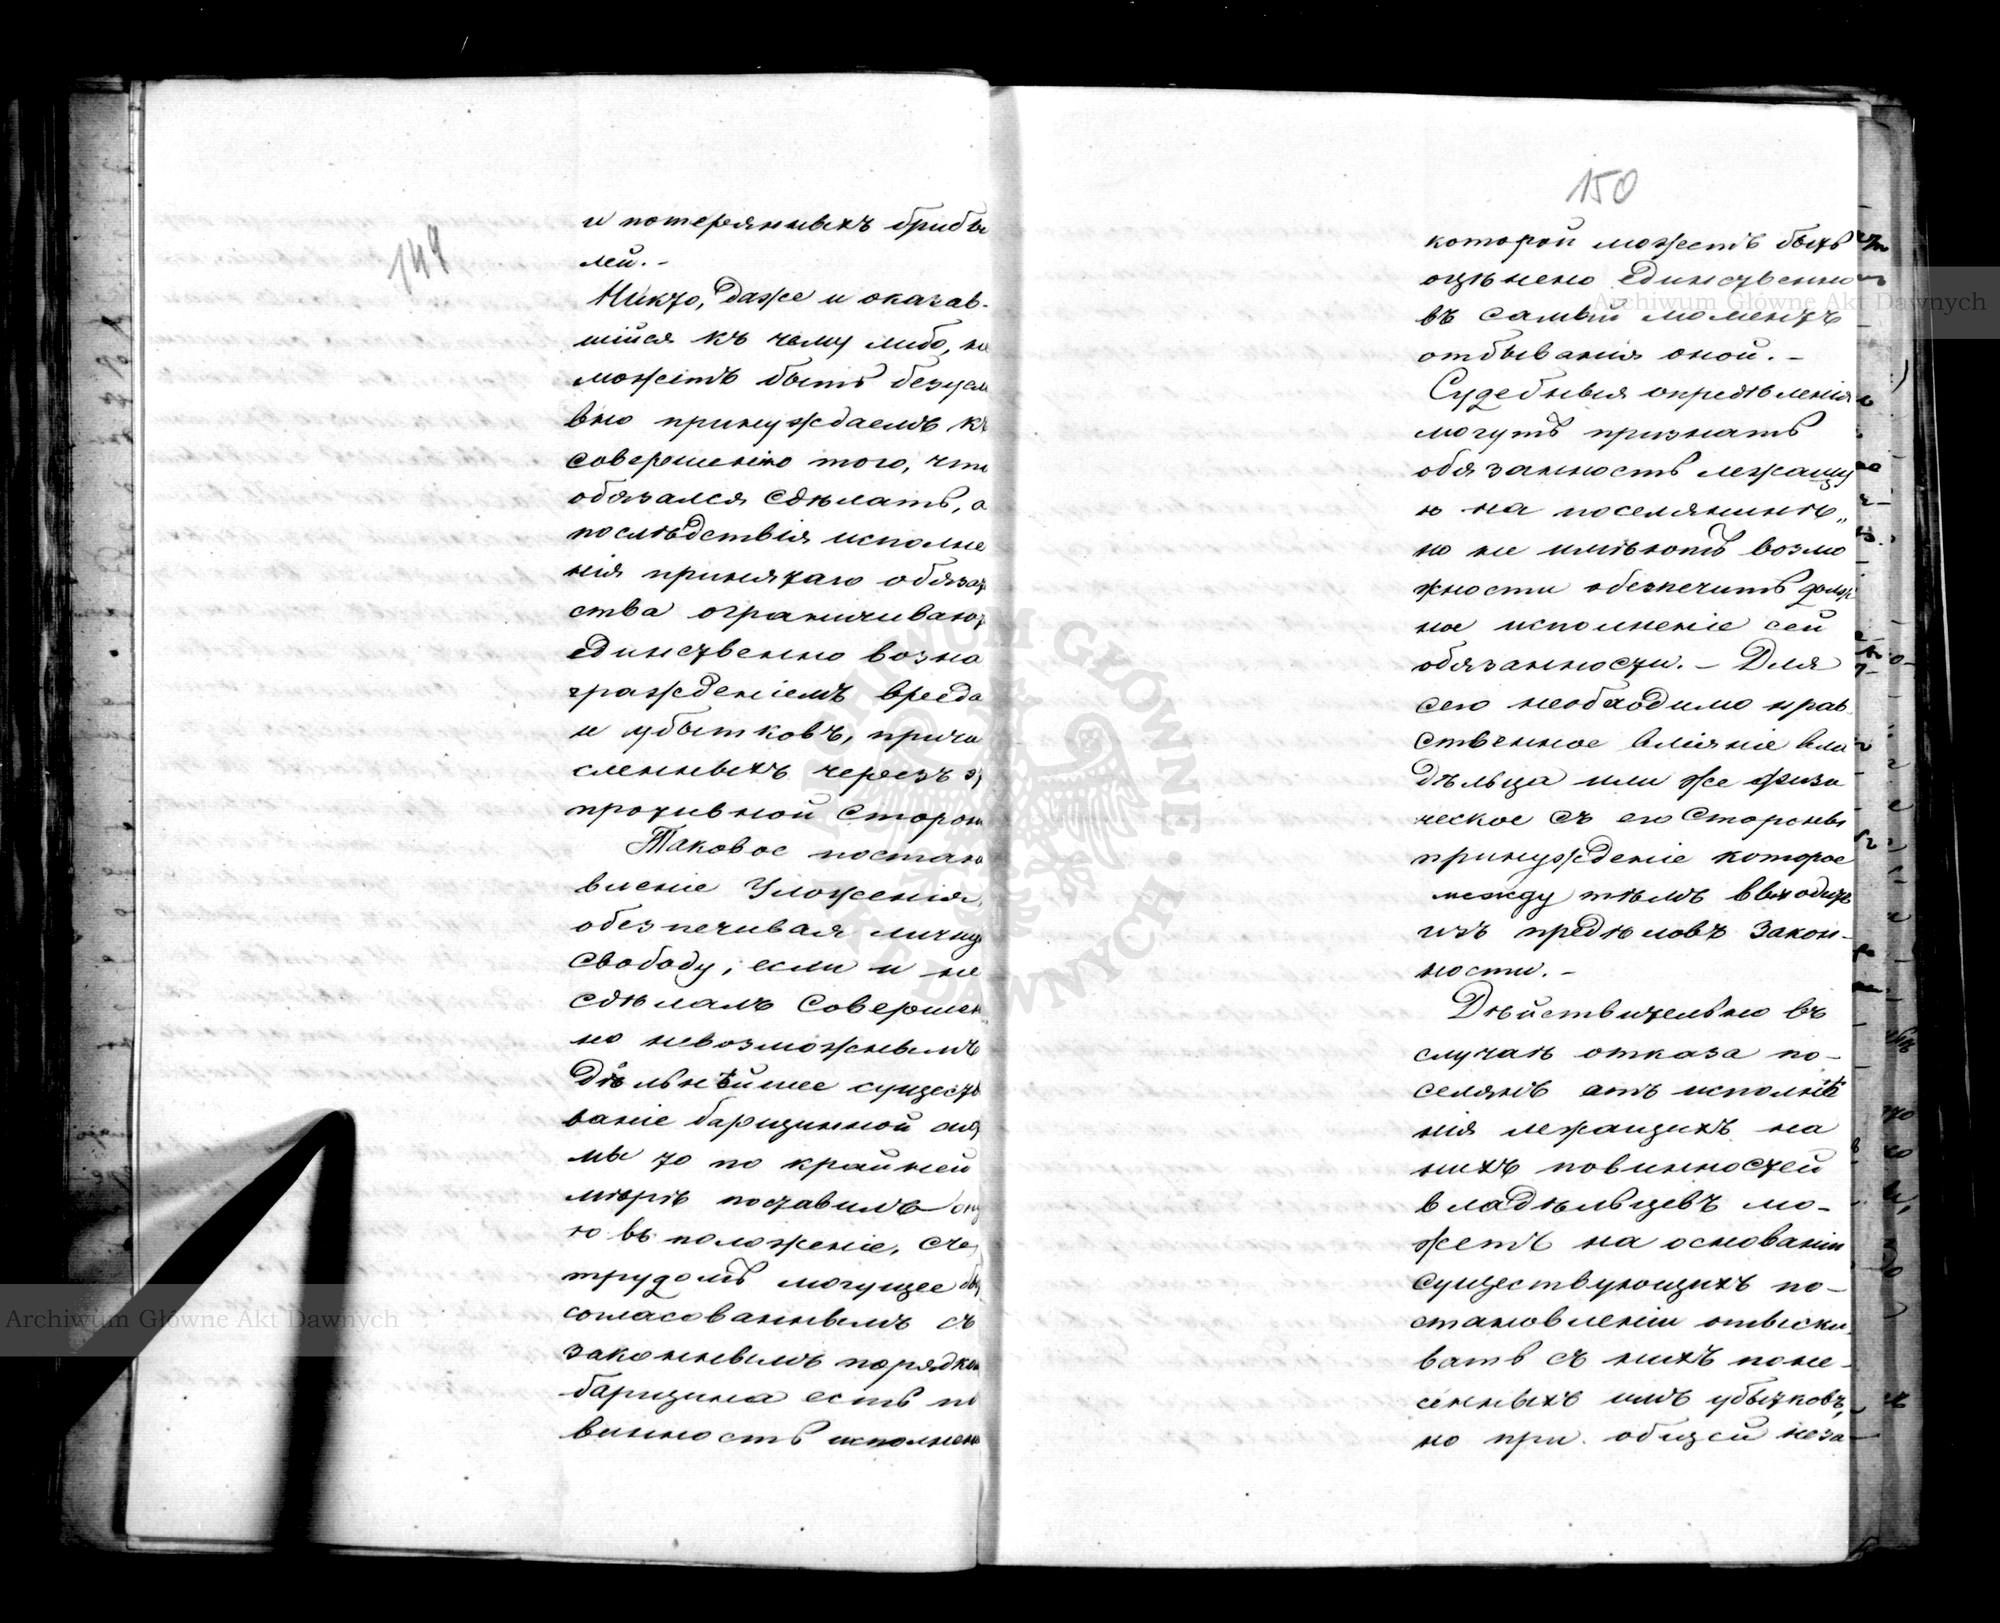 149
и потерянныхъ прибы
лей. -
Никто, даже и оказав-
шійся къ чему либо, не
можетъ быть безусло
вно принуждаемъ къ
совершенію того, что
обязался сдѣлать, а
послѣдствія исполне
нія принятаго обяза
ства ограничиваю
единственно возна
гражденіемъ вреда
и убытковъ, причи
сленныхъ черезъ
противной сторон
Таковое постано
вленіе Уложенія,
обезпечивая личну
свободу, если и не
сдѣламъ совершен
но невозможнымъ
дѣльнѣйшее существ
ваніе барщинной сис
мы то по крайней
мѣрѣ поставилъ
ю въ положеніе, съ
трудомъ могущее бы
согласованнымъ съ
законнымъ порядком
барщина есть по
винность исполнен
150
которой можетъ быть
оцѣнено единственно
въ самый моментъ
отбыванія оной. -
Судебныя опредѣленія
могутъ признать
обязанность лежащу
ю на поселянинѣ,,
но не имѣютъ возмо
жности обезпечить долж
ное исполненіе сей
обязанности. - Для
сего необходимо нрав
ственное вліяніе вла
дѣльца или же физи
ческое съ его стороны
принужденіе которое
между тѣмъ выходитъ
изъ предѣловъ закон-
ности. -
Дѣйствительно въ
случаѣ отказа по-
селянъ отъ исполне
нія лежащихъ на
нихъ повинностей
владѣльцевъ мо-
жетъ на основаніи
существующихъ по-
становленіи отыски
вать съ нихъ поне-
сенныхъ имъ убытковъ,
но при общей неза-
Archiwum Główne Akt Dawnych
Archiwum Główne Akt Dawnych
ARCHIWUM GŁÓWNE AKT DAWNYCH